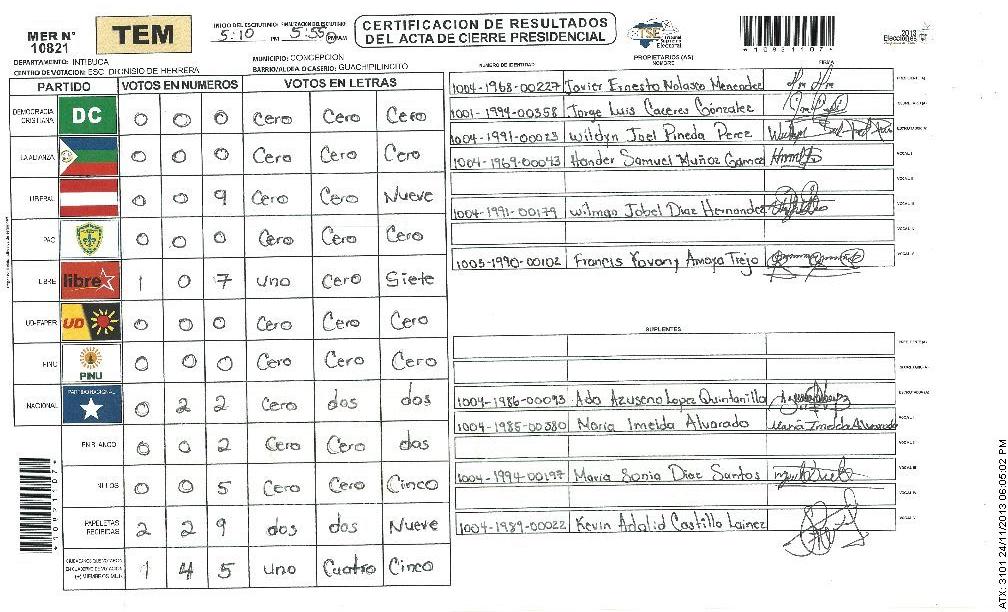 MER N° 10821
TEM
INICIO DEL ESCRUTINIO 5:10 PM
FINALIZACION DEL ESCRUTINIO 5:55 PM
CERTIFICACION DE RESULTADOS
DEL ACTA DE CIERRE PRESIDENCIAL
TSE Tribunal Supremo Electoral
*10821107*
2013
Elecciones
DEPARTAMENTO: INTIBUCA
MUNICIPIO: CONCEPCION
CENTRO DE VOTACION: ESC. DIONISIO DE HERRERA
BARRIO/ALDEA O CASERIO: GUACHIPILINCITO
PARTIDO VOTOS EN NUMEROS VOTOS EN LETRAS
DEMOCRACIA CRISTIANA DC 0 0 0 Cero Cero Cero
LA ALIANZA 0 0 0 Cero Cero Cero
LIBERAL 0 0 9 Cero Cero Nueve
PAC 0 0 0 Cero Cero Cero
LIBRE libre 1 0 7 uno Cero Siete
UD-FAPER UD 0 0 0 Cero Cero Cero
PINU PINU 0 0 0 Cero Cero Cero
NACIONAL PARTIDO NACIONAL 0 2 2 Cero dos dos
EN BLANCO 0 0 2 Cero Cero dos
NULOS 0 0 5 Cero Cero Cinco
PAPELETAS RECIBIDAS 2 2 9 dos dos Nueve
CIUDADANOS QUE VOTARON EN CUADERNO DE VOTACION (+) MIEMBROS MER 1 4 5 uno Cuatro Cinco
PROPIETARIOS (AS)
NUMERO DE IDENTIDAD NOMBRE FIRMA
1004-1968-00227 Javier Ernesto Nolasco Menendez PRESIDENTE (A)
1001-1994-00358 Jorge Luis Caceres Gonzalez SECRETARIO (A)
1004-1991-00023 Wildyn Joel Pineda Perez ESCRUTADOR (A)
1004-1969-00043 Hander Samuel Muñoz Gamez VOCAL I
VOCAL II
1004-1991-00179 Wilman Jobel Diaz Hernandez VOCAL III
VOCAL IV
1005-1990-00102 Francis Yovany Amaya Trejo VOCAL V
SUPLENTES
PRESIDENTE (A)
SECRETARIO (A)
1004-1986-00093 Ada Azusena Lopez Quintanilla ESCRUTADOR (A)
1004-1985-00380 Maria Imelda Alvarado Maria Imelda Alvarado VOCAL I
VOCAL II
1004-1994-00197 Maria Sonia Diaz Santos VOCAL III
VOCAL IV
1004-1989-00022 Kevin Adalid Castillo Lainez VOCAL V
*10821107*
ATX: 3101 24/11/2013 06:05:02 PM